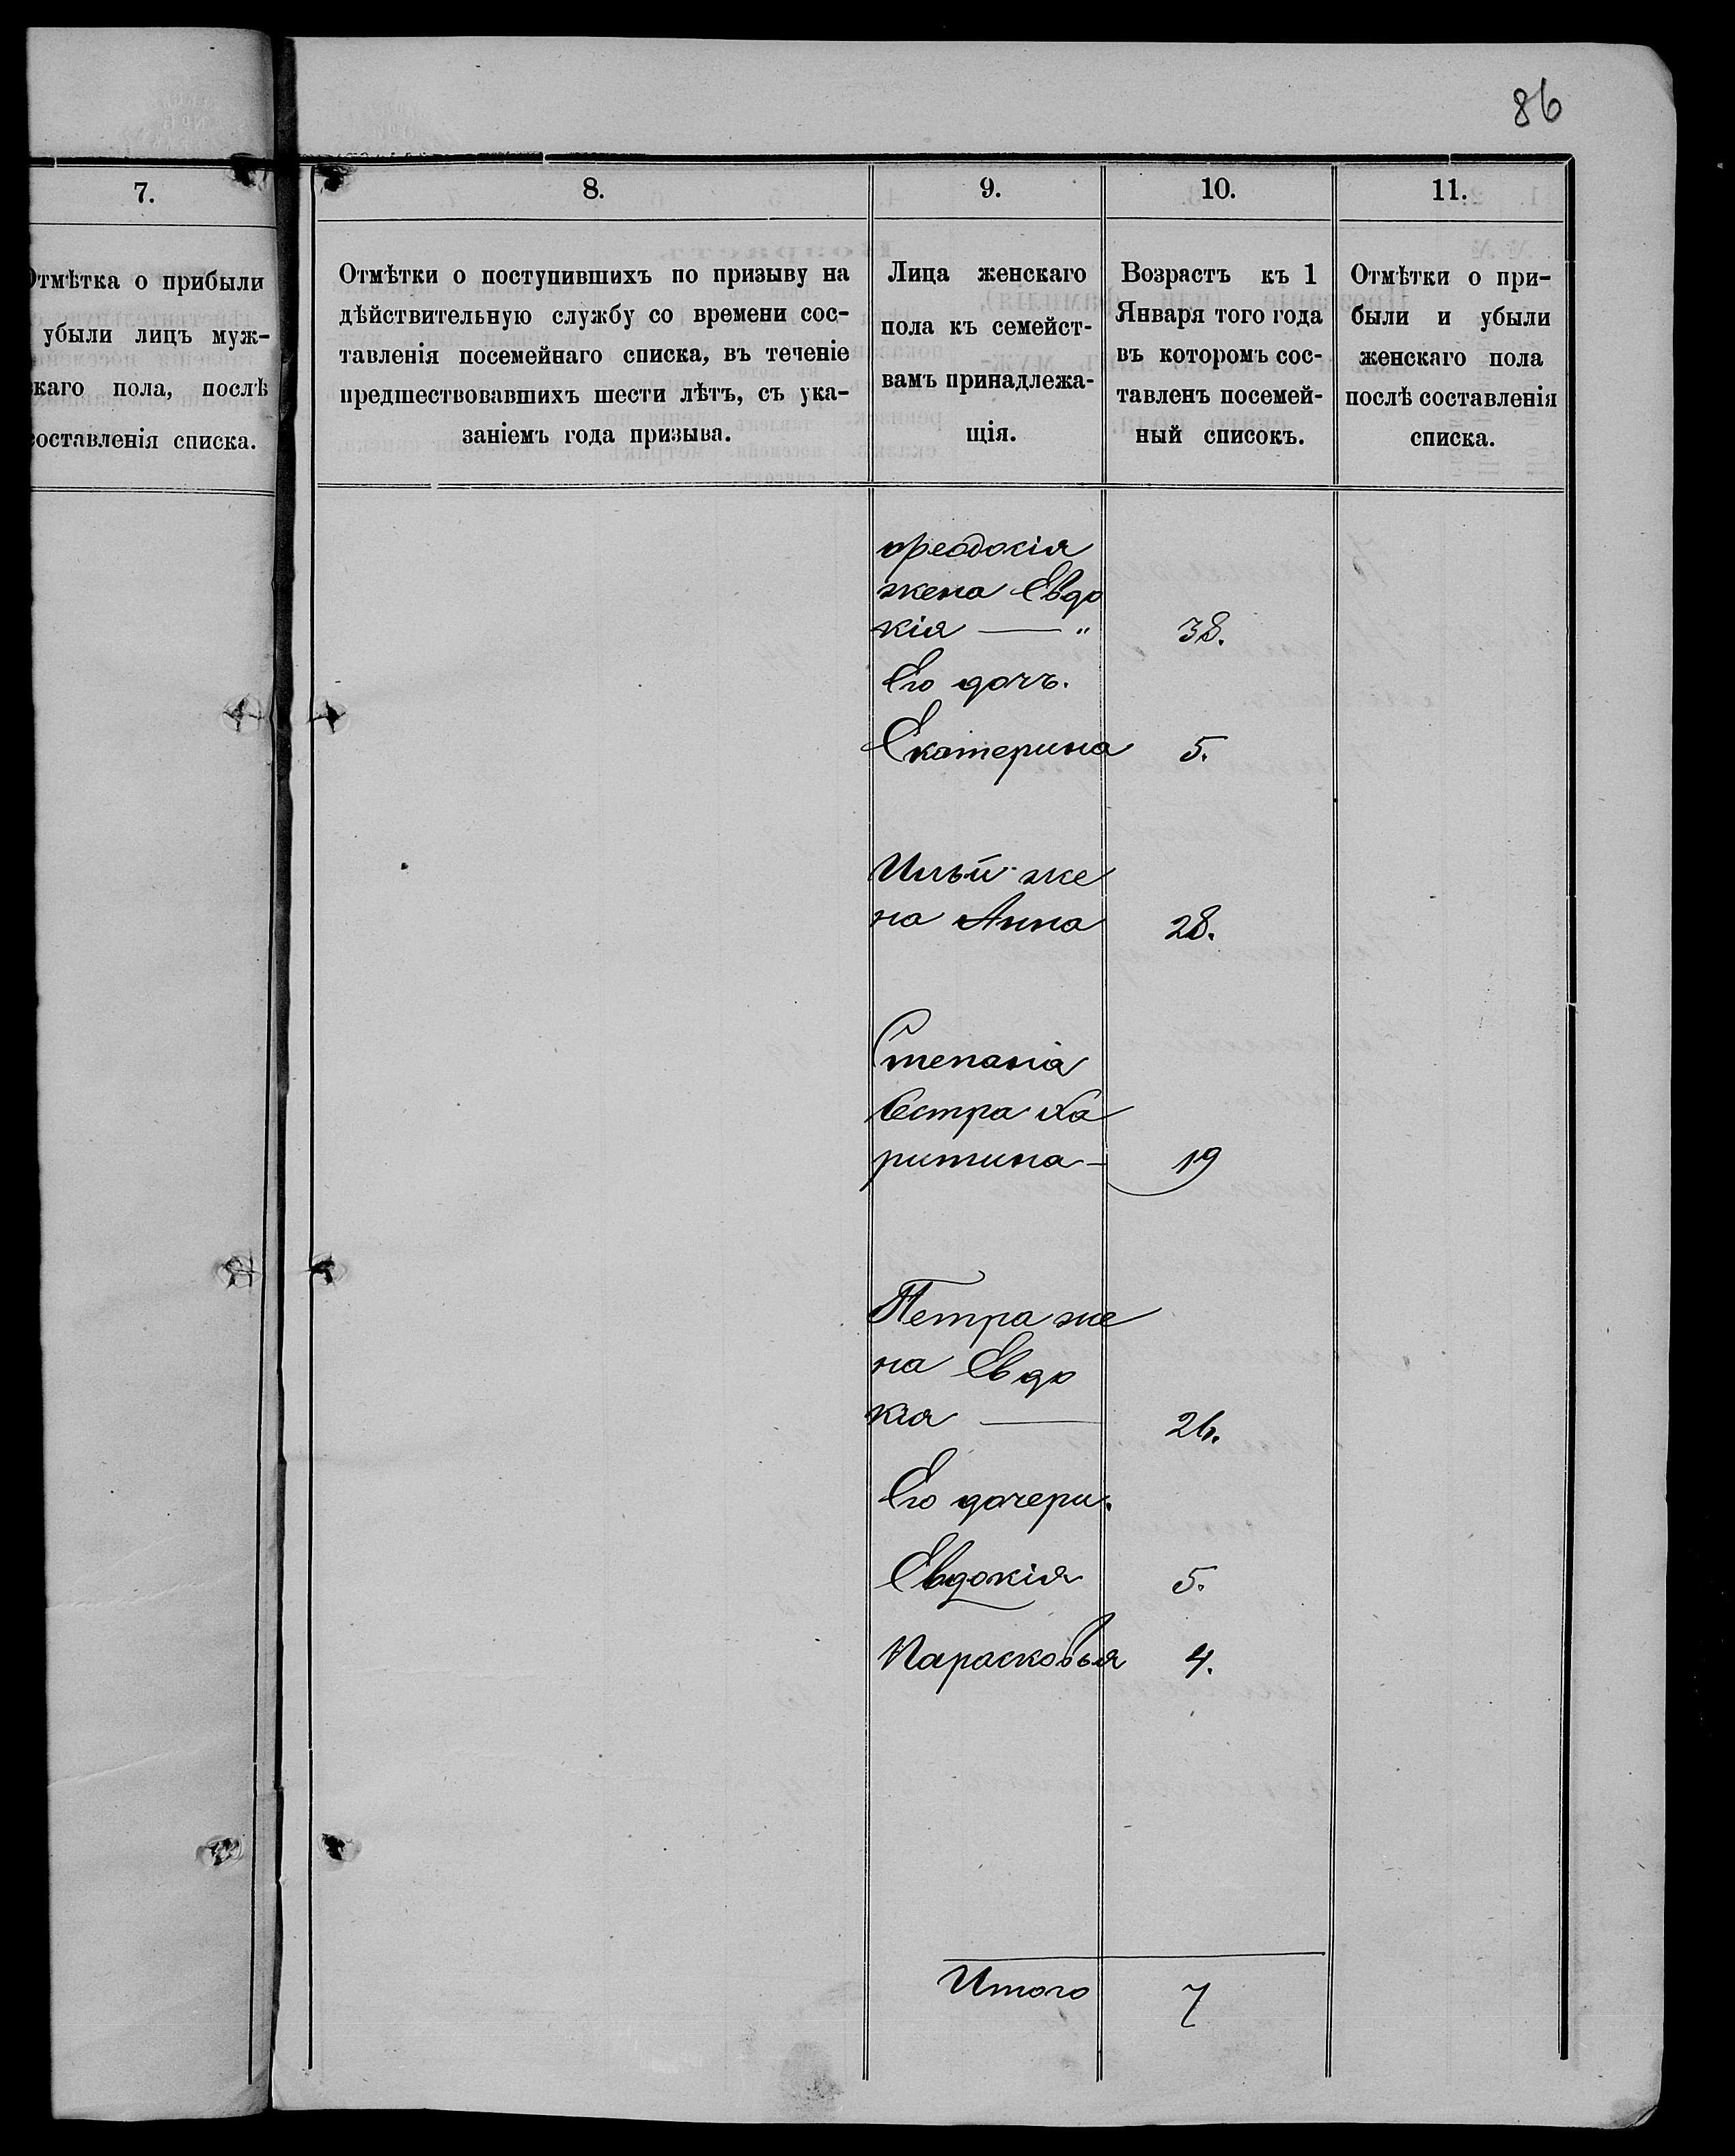 86
7.
Отмѣтка о прибыли
убыли лицъ муж-
скаго пола, послѣ
составленія списка.
8.
Отмѣтки о поступившихъ по призыву на
дѣйствительную службу со времени сос-
тавленія посемейнаго списка, въ теченіе
предшествовавшихъ шести лѣтъ, съ ука-
заніемъ года призыва.
9.
Лица женскаго
пола къ семейст-
вамъ принадлежа-
щія.
10.
Возрастъ къ 1
Января того года
въ которомъ сос-
тавленъ посемей-
ный списокъ.
11.
Отмѣтки о при-
были и убыли
женскаго пола
послѣ составленія
списка.
Ѳеодосія
жена Евдо
кія — " 38.
Его дочь.
Екатерина 5.
Ильи же
на Анна 28.
Степана
сестра Ха
ритина - 19
Петра же
на Евдо
кія — 26.
Его дочери.
Евдокія 5.
Парасковья 4.
Итого 7